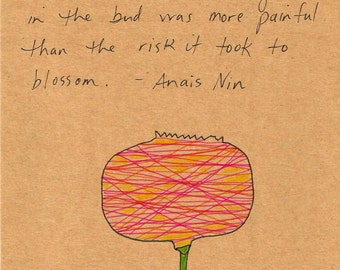 in the bud was more painful
than the risk it took to
blossom. - Anais Nin